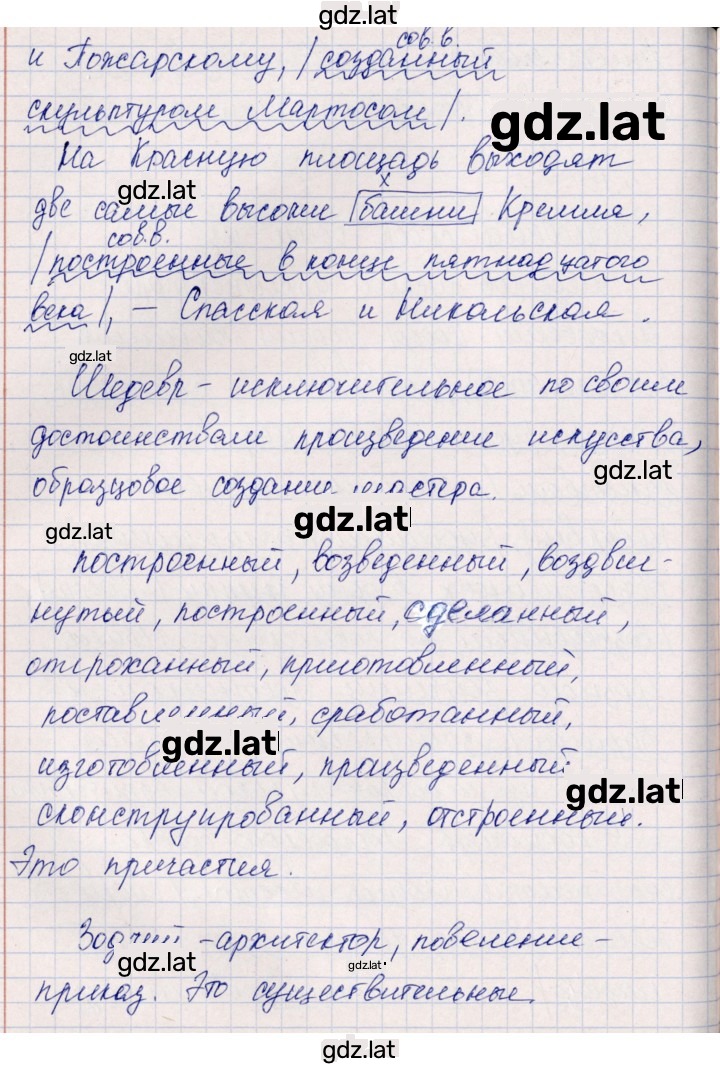 gdz.lat
сов.в.
и Пожарскому, | созданный
скульптуром Мартосом |.
gdz.lat
На Красную площадь выходят
gdz.lat
х
две самые высокие башни Кремля,
сов.в.
| построенные в конце пятнадцатого
века |, – Спасская и Никольская.
gdz.lat
Шедевр - исключительное по своим
достоинствам произведение искусства,
gdz.lat
образцовое создание мастера.
gdz.lat
gdz.lat
построенный, возведенный, воздви-
нутый, построенный, сделанный,
отгроханный, приготовленный,
поставленный, сработанный,
gdz.lat
изготовленный, произведенный
gdz.lat
сконструированный, отстроенный.
Это причастия.
Зодчий - архитектор, повеление -
gdz.lat
gdz.lat
приказ. Это существительные.
gdz.lat